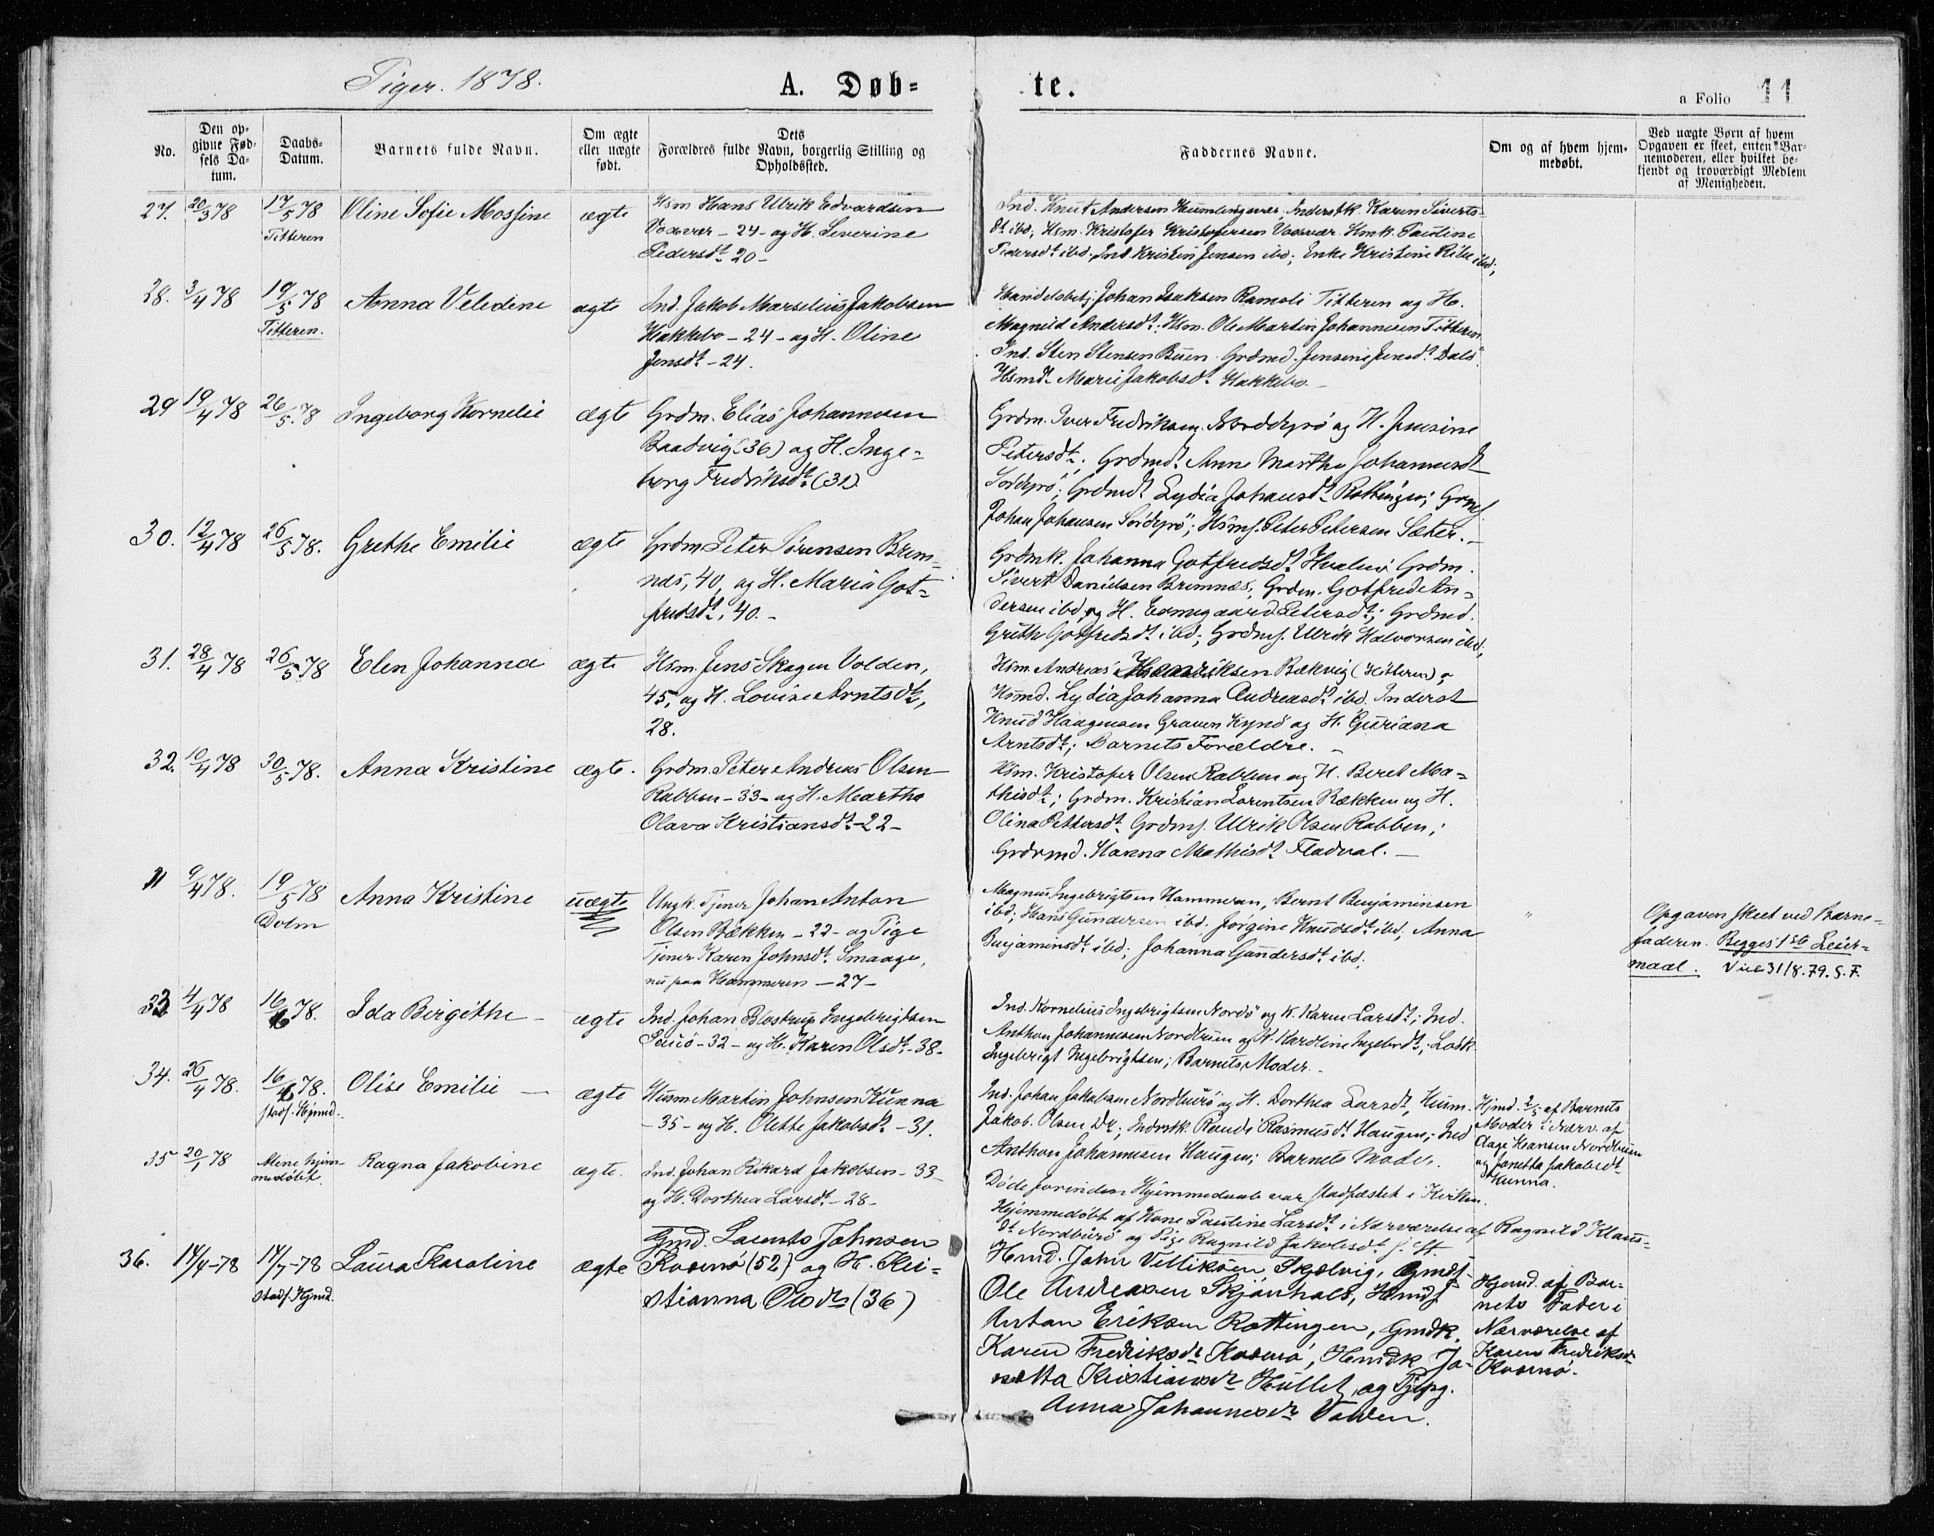 Piger. 1878.
A. Døb-
te.
a Folio 11
No.
Den op-
givne Fød-
sels Da-
tum.
Daabs-
Datum.
Barnets fulde Navn.
Om ægte
eller uægte
født.
Dets
Forældres fulde Navn, borgerlig Stilling og
Opholdssted.
Faddernes Navne.
Om og af hvem hjem-
medøbt.
Ved uægte Børn af hvem
Opgaven er skeet, enten Bar-
nemoderen, eller hvilket be-
kjendt og troværdigt Medlem
af Menigheden.
27. 20/3 78 17/5 78 Oline Sofie Mossine ægte Hsm Hans Ulrik Edvardsen
Titteren
Vodsvær - 24 - og H. Severine
Pedersdt. 20 -
Ind. Knut Andersen Kumlingsvær, Inderstk. Karen Siverts-
dt ibd; Hsm. Kristofer Kristofersen Vodsvær Hmk. Pauline
Pedersdt ibd; Ind. Kristin Jensen ibd; Enke Kristine ibd;
28. 3/4 78 19/5 78 Anna Veledene ægte Ind. Jakob Marselius Jakobsen
Titteren.
Hakkebo - 24 - og H. Oline
Jensdt - 24.
Handelsbetj Johan Isaksen Ramsli Titteren og H.
Magnild Andersdt; Hsm. Ole Martin Johannesen Titteren
Ind. Sten Stensen Buen. Grdmd. Jensine Jensdt Dalö
Hsmd. Marie Jakobsdt Hakkebo -
29 19/4 78 26/5 78 Ingeborg Kornelie ægte Grdm. Elias Johannesen
Baadvig (36) og H. Inge-
borg Fredriksdt. (31)
Grdm. Iver Fredriksen og H. Jensine
Petersdt; Grdmd. Anne Martha Johannesdt
Grdmd. Lydia Johansdt Rottingen;
Johan Johansen Hsmf. Peter Petersen Sæter. -
30. 12/4 78 26/5 78. Grethe Emilie ægte Grdm Peter Sørensen Brem-
næs, 40, og H. Maria Got-
fredsdt, 40. -
Grdmk. Johanna Gotfredsdt Grdm.
Sivert Danielsen Bremnæs; Grdm. Gotfred An-
dersen ibd, og H. Ermegaard Petersdt; Grdmd.
Grethe Gotfredsdt ibd; Grdmf. Ulrik Halvorsen ibd;
31. 28/4 78 26/5 78 Elen Johanna ægte Hsm. Jens Skagen Volden,
45, og H. Lovise Arntsdt,
28.
Hsm. Andreas Henriksen Bækvig (Hitteren);
Hsmd. Lydia Johanna Andreasdt ibd. Inderst
Knud Haagensen Graven Kynö og H. Guriana
Arntsdt; Barnets Forældre. -
32. 10/4 78 30/5 78. Anna Kristine ægte. Grdm. Peter Andreas Olsen
Rabben - 33 - og H. Martha
Olava Kristiansdt - 22 -
Hsm. Kristofer Olsen Rabben og H. Beret Ma-
thisdt; Grdm. Kristian Lorentsen Rækken og H.
Olina Pettersdt Grdmf. Ulrik Olsen Rabben;
Grdmd. Hanna Mathisdt Fladval. -
11 9/4 78. 19/5 78 Anna Kristine uægte Ungk. Tjener Johan Anton
Dolm
Olsen Bækken - 22 - og Pige
Tjener Karen Johnsdt Smaage,
nu paa Hammeren - 27 -
Magnus Ingebrigtsen Hammeren, Bernt Benjaminsen
ibd; Hans Gundersen ibd. Jørgine Knudsdt ibd, Anna
Benjaminsdt ibd; Johanna Gundersdt ibd.
"
Opgaven skeet ved Barne-
faderen. Begges 1ste Leier-
maal. Vied 31/8.79. S.F.
33 4/4 78 16/6 78. Ida Birgithe - ægte Ind. Johan Blostrup Ingebrigtsen
- 32 - og H. Karen Olsdt - 38 -
Ind. Kornelius Ingebrigtsen Nordö og K. Karen Larsdt; Ind.
Anthon Johannesen Nordbuen og K. Karoline Ingebrdt;
Ingebrigt Ingebrigtsen; Barnets Moder. -
34. 26/4 78. 16/6 78. Olise Emilie - ægte Husm Martin Johnsen Kunna
stadf. Hjmd.
- 35 - og H. Olette Jakobsdt - 31.
Ind. Johan Jakobsen Nordbuö og H. Dorthea Larsdt, Husm.
Jakob Olsen Do; Indrstk. Randi Rasmusdt Haugen; Ind
Anthon Johannesen Haugen; Barnets Moder.
Hjmd. 2/5 af Barnets
Moder i Nærv. af
Aage Hansen Nordbuen
og Janetta Jakobsdt
Kunna.
35 20/1 78 Alene hjem-
medøbt. Ragna Jakobine ægte. Ind. Johan Rikard Jakobsen - 33 -
og H. Dorthea Larsdt - 28 -
Døde forinden Hjemmedaab var stadfæstet i Kirken.
Hjemmedøbt af Kone Pauline Larsdt i Nærværelse af Ragnild Klaus-
dt Nordbuö og Pige Ragnild Jakobsdt
36. 14/4-78 14/7-78 Laura Karoline ægte Gmd. Laurits Johnsen
stadf. Hjmd.
Kvernö (52) og H. Kri-
stianna Olsdr (36)
Hmd. John Villiksen, Skjelvig, Gmdf
Ole Andreasen Skjønhals, Hmdf
Anton Eriksen Rottingen, Gmdk.
Karen Fredriksdr Kvernö, Hmdk Ja-
netta Kristiansdr Hullet, og Tjpg.
Anna Johannesdr Valden.
Hjemd. af Bar-
nets Fader i
Nærværelse af
Karen Fredriksdr
Kvernö.